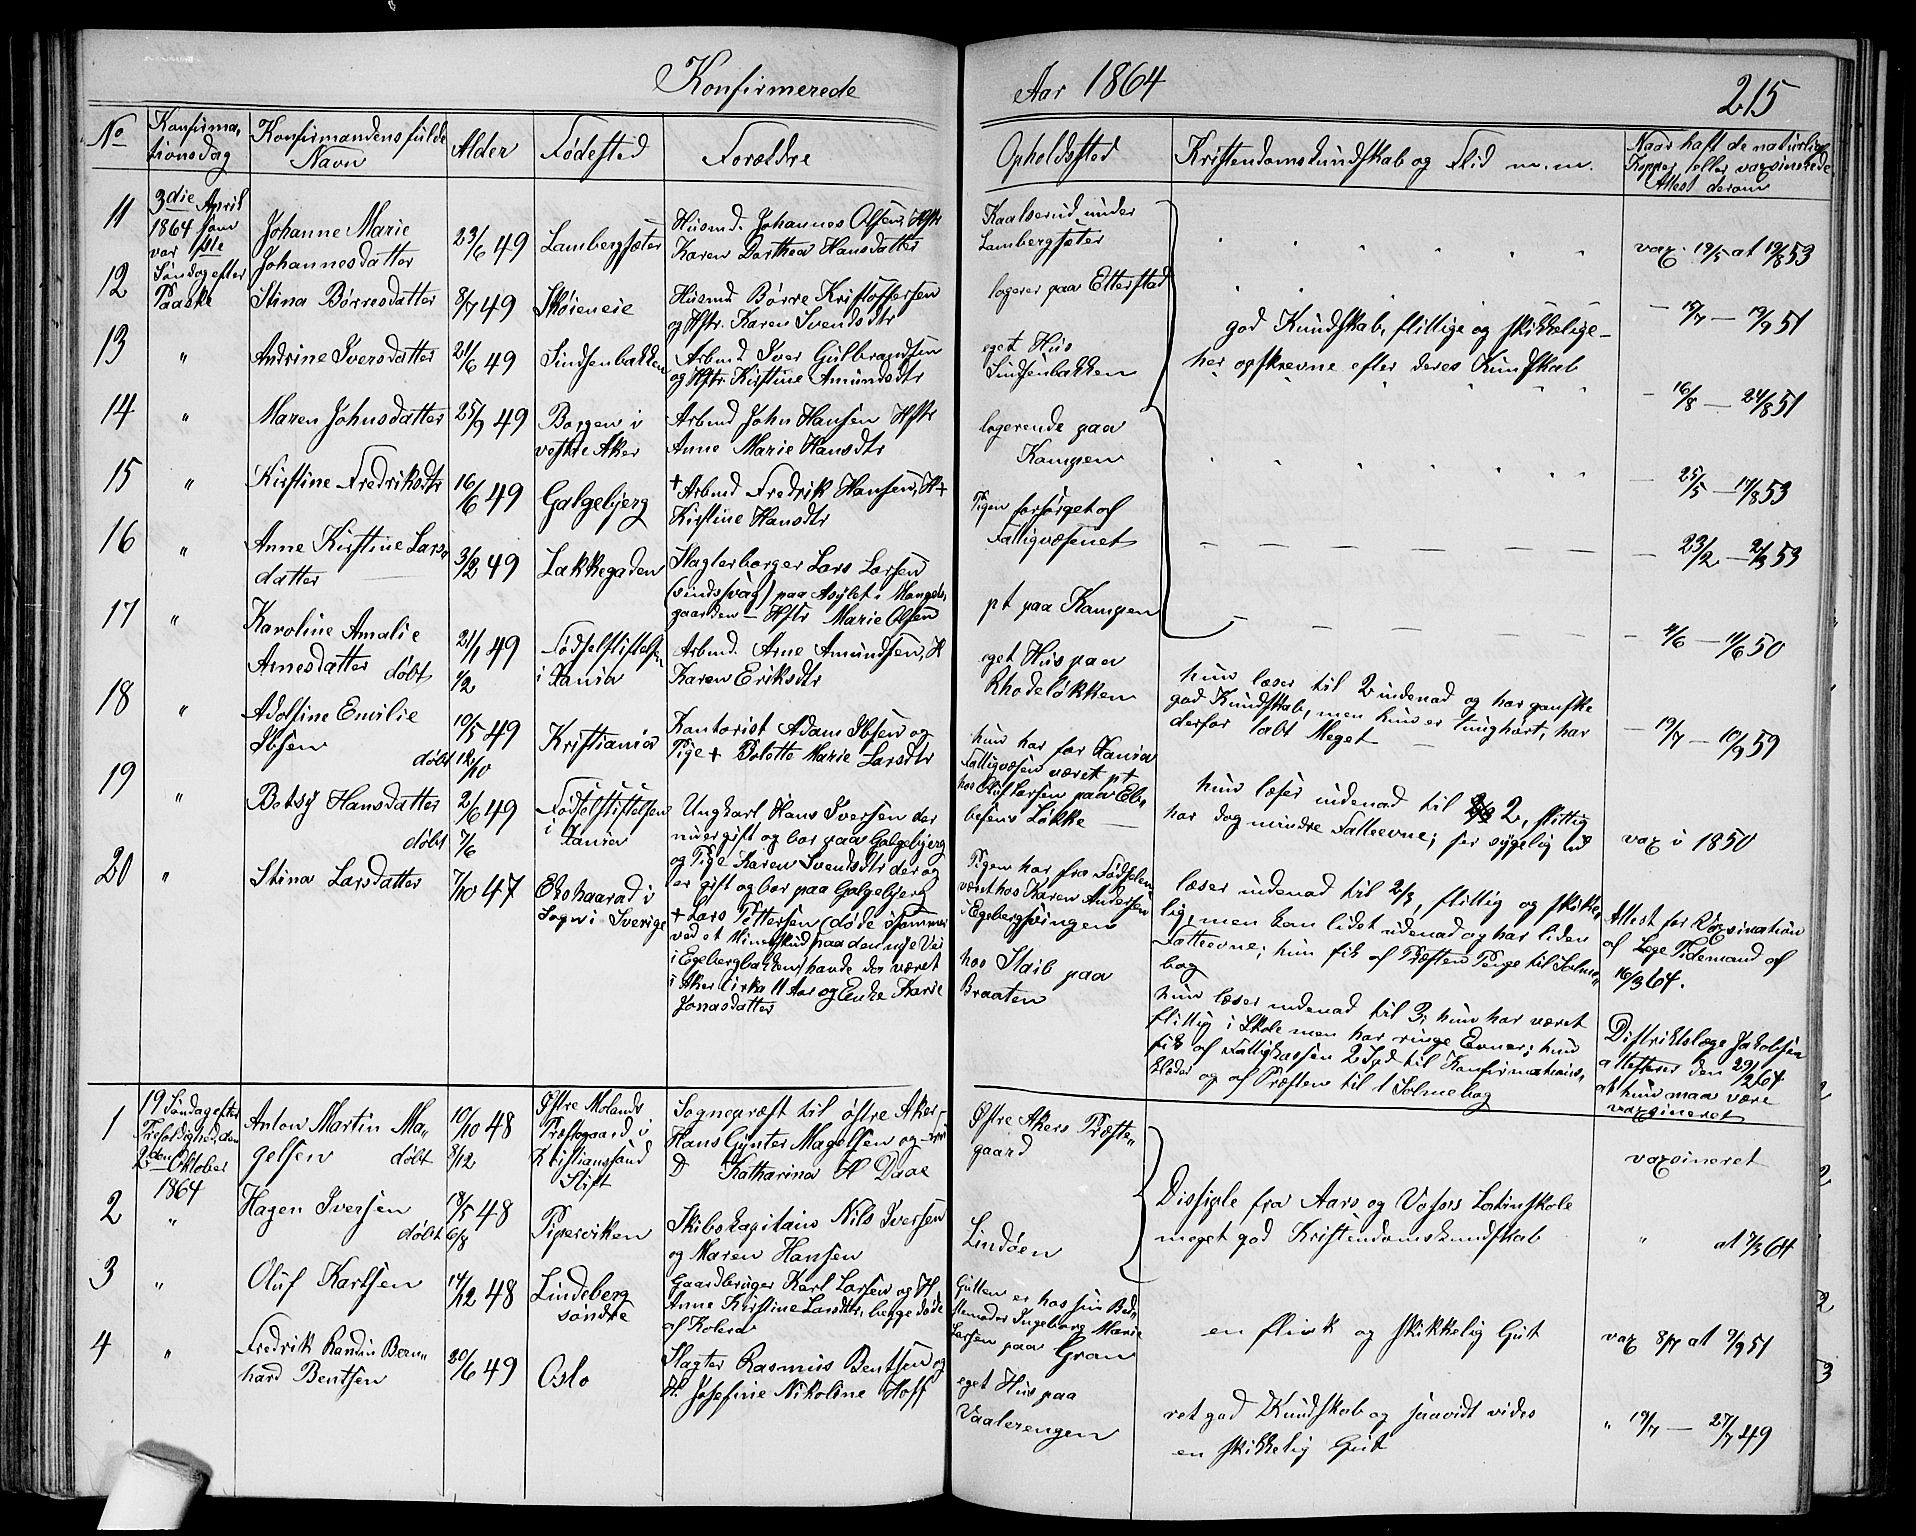 Konfirmerede
Aar 1864
215
No
Konfirma,
tionsdag
Konfirmandens fulde
Navn
Alder
Fødested
Forældre
Opholdssted
Kristendomskundskab og Flid m.m.
Naar haft de naturlige
Kopper eller vaxsinerede
Attest derom
11
3die April
1864 som
var 1ste
Søndag efter
Paaske
Johanne Marie
Johannesdatter
23/6 49
Lambergsæter
Husmd. Johannes Olsen, Hstr
Karen Dorthea Hansdatter
Kaalserud under
Lambergsæter
vax. 19/5 at 19/8 53
12
Stina Børresdatter
8/7 49
Skøieneie
Husmd Børre Kristoffersen
og Hstr. Karen Svendsdtr
logerer paa Etterstad
god Kundskab, flittige og skikkelige –
her opskrevne efter deres Kundskab
13
"
Andrine Iversdatter
21/6 49
Sindsenbakken
Arbmd Iver Gulbrandsen
og Hstr. Kirstine Amundsdtr
eget Hus
Sindsenbakken
14
"
Maren Johnsdatter
25/9 49
Borgen i
vestre Aker
Arbmd John Hansen Hstr
Anne Marie Hansdtr
logerende paa
Kampen
– 16/8 – 24/8 51
15
"
Kirstine Fredriksdtr
16/6 49
Galgebjerg
+ Arbmd Fredrik Hansen, H+
Kirstine Hansdtr
Pigen forsørget af
Fattigvæsenet
16
"
Anne Kirstine Lars,
datter
3/2 49
Lakkegaden
Slagterborger Lars Larsen
(sindssvag) paa Asylet i Mangels,
gaarden – Hstr Marie Olsen
pt paa Kampen
17
"
Karoline Amalie
Arnesdatter døbt
21/1 49
1/2
Fødselsstiftelsen
i Xania
Arbmd. Arne Amundsen, H
Karen Eriksdtr
eget Hus paa
Rhodeløkken
hun læser til 2 indenad og har ganske
god Kundskab, men hun er tunghørt, har
derfor tabt Meget –
18
"
Adolfine Emilie
Ibsen
døbt
10/5 49
12/10
Kristiania
Kontorist Adam Ibsen og
Pige + Bolette Marie Larsdtr
hun har for Xania
Fattigvæsen været pt
hos Oluf Larsen paa Eb,
besens Løkke –
hun læser indenad til 2, flittig
har dog mindre Fatteevne; ser sygelig ud
19
"
Betsy Hansdatter
døbt
2/6 49
7/6
Fødselsstiftelsen
i Xania
Ungkarl Hans Iversen der
nu er gift og bor paa Galgebjerg
og Pige Karen Svendsdtr der og
er gift og bor paa Galgebjerg
Pigen har fra Fødselen
været hos Karen Andersen
i Egebergspringen
læser indenad til 2/3, flittig og skikke,
lig, men kan lidet udenad og har liden
Fatteevne; hun fik af Præsten Penge til Salme,
bog
vax i 1850
20
"
Stina Larsdatter
7/10 47
Ekshaarad i
Sogn i Sverige
+ Lars Pettersen (døde isommer
ved et Mineskud paa den nye Vei
i Egebergbakken) havde der været
i Aker cirka 11 Aar og Enke Karie
Jonasdatter
hos Staib paa
Braaten
hun læser indenad til 3; hun har været
flittig i Skole men har ringe Evner; hun
fik af Fattigkassen 2 Spd til Konfirmations,
klæder og af Præsten til 1 Salmebog
Attest for Vaxsination
af Læge Tidemand af
16/3 64.
Distriktslæge Jakobsen
attesterer den 29/2 64
at hun maa være
vaxsineret
1
19 Søndag efter
Trefoldighed, den
2den Oktober
1864
Anton Martin Ma,
gelsen døbt
10/10 48
8/12
Østre Molands
Præstegaard i
Kristianssand
Stift
Sognepræst til østre Aker,
Hans Gynter Magelsen og
Katharina H Daae
Østre Akers Præste,
gaard
Dissiple fra Aars og Vosses Latinskole
meget god Kristendomskundskab
vaxsineret
2
"
Hagen Iversen
døbt
18/5 48
6/8
Piperviken
Skibskapitain Nils Iversen
og Maren Hansen
Lindøen
3
"
Oluf Karlsen
14/12 48
Lindeberg
søndre
Gaardbruger Karl Larsen og H,
Anne Kirstine Larsdtr, begge døde
af Kolera
Gutten er hos sin Bed,
stemoder Ingeborg Marie
Larsen paa Gran
en flink og skikkelig Gut
vax 8/7 at 9/9 51
4
"
Fredrik Randin Bern,
hard Bentsen
20/6 49
Oslo
Slagter Rasmus Bentsen og
H. Josefine Nikoline Hoff
eget Hus paa
Vaalerengen
ret god Kundskab og saavidt vides
en skikkelig Gut
" 19/7 – 27/7 49